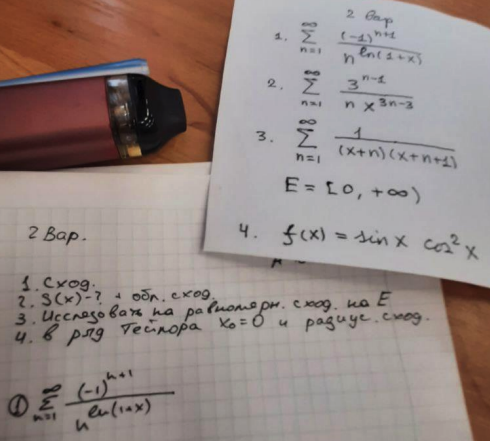 2 Вар
1. ∞ Σ n=1 (-1)^{n+1} / n^{ln(1+x)}
2. ∞ Σ n=1 3^{n-1} / n x^{3n-3}
3. ∞ Σ n=1 1 / (x+n)(x+n+1)
E = [0, +∞)
4. f(x) = sin x cos² x
2 Вар.
1. Сход.
2. S(x)-? + обл. сход.
3. Исследовать на равномерн. сход. на E
4. в ряд Тейлора x₀=0 и радиус. сход.
① ∞ Σ n=1 (-1)^{n+1} / n^{ln(1+x)}